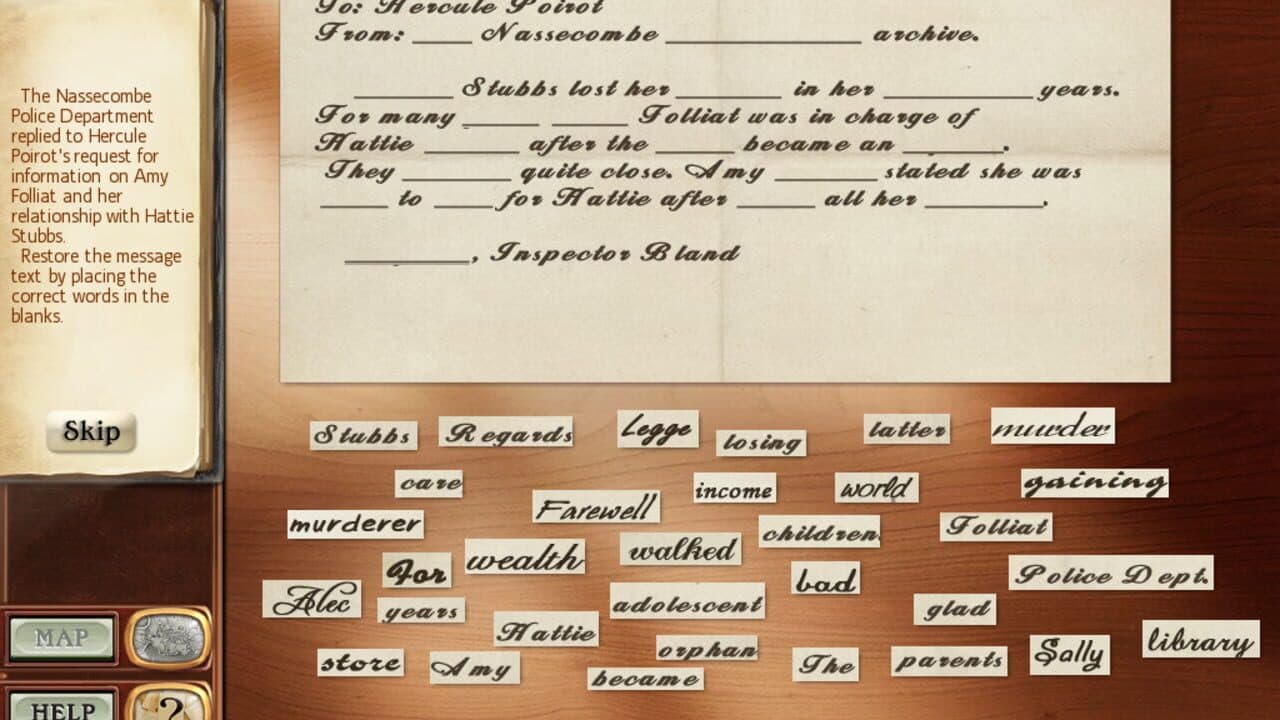 To: Hercule Poirot
From: ____ Nassecombe ____________ archive.
The Nassecombe
Police Department
replied to Hercule
Poirot's request for
information on Amy
Folliat and her
relationship with Hattie
Stubbs.
Restore the message
text by placing the
correct words in the
blanks.
Skip
_______ Stubbs lost her _______ in her __________ years.
For many _____ _____ Folliat was in charge of
Hattie ______ after the _____ became an _______.
They _______ quite close. Amy _______ stated she was
____ to ____ for Hattie after _____ all her ________.
________, Inspector Bland
Stubbs Regards Legge losing latter murder
care income world gaining
murderer Farewell children Folliat
For wealth walked bad Police Dept.
Alec years adolescent glad
Hattie orphan Sally library
store Amy became The parents
MAP
HELP ?